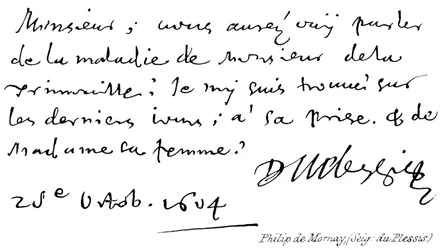 Monsieur; vous aurez ouy parler
de la maladie de Monsieur de la
Trimouille: Je my suis trouué sur
les derniers iours; a' sa prise. & de
Madame sa femme:
Duplessis
25e Octob. 1604
Philip de Mornay, (Seig: du Plessis)